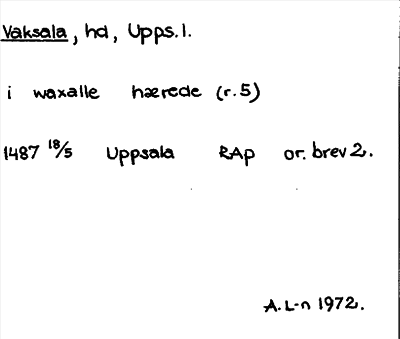 Vaksala, hd, Upps. l.
i waxalle hærede (r. 5)
1487 18/5 Uppsala RAp or. brev 2.
A. L-n 1972.